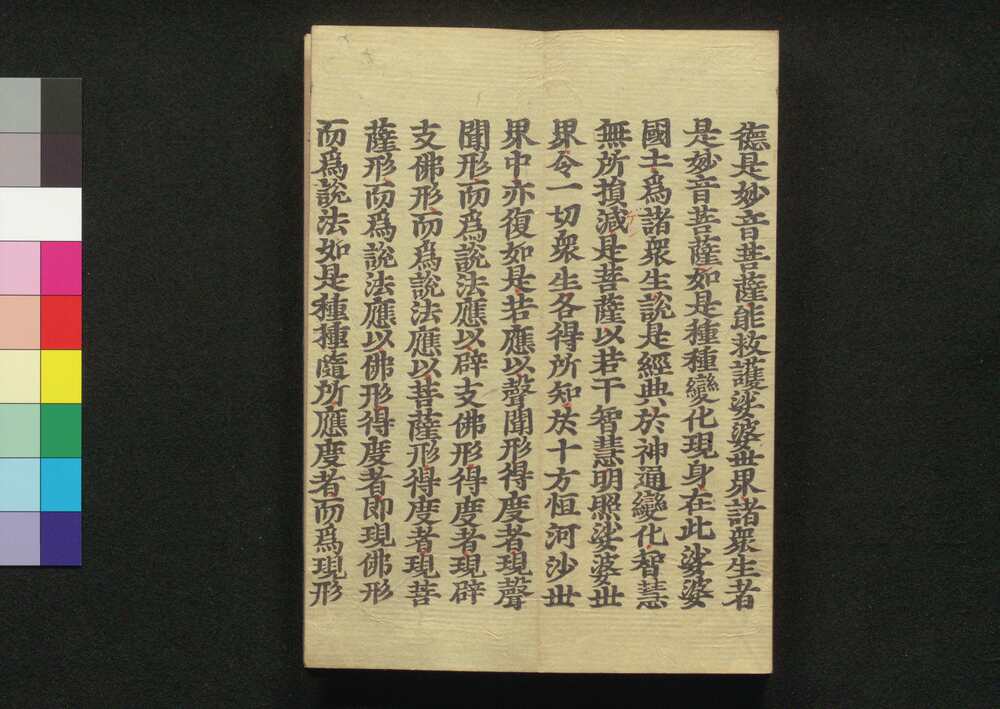 德是妙音菩薩能救護娑婆世界諸衆生者
是妙音菩薩如是種種變化現身在此娑婆
國土爲諸衆生說是經典於神通變化智慧
無所損減是菩薩以若干智慧明照娑婆世
界令一切衆生各得所知於十方恒河沙世
界中亦復如是若應以聲聞形得度者現聲
聞形而爲說法應以辟支佛形得度者現辟
支佛形而爲說法應以菩薩形得度者現菩
薩形而爲說法應以佛形得度者即現佛形
而爲說法如是種種隨所應度者而爲現形